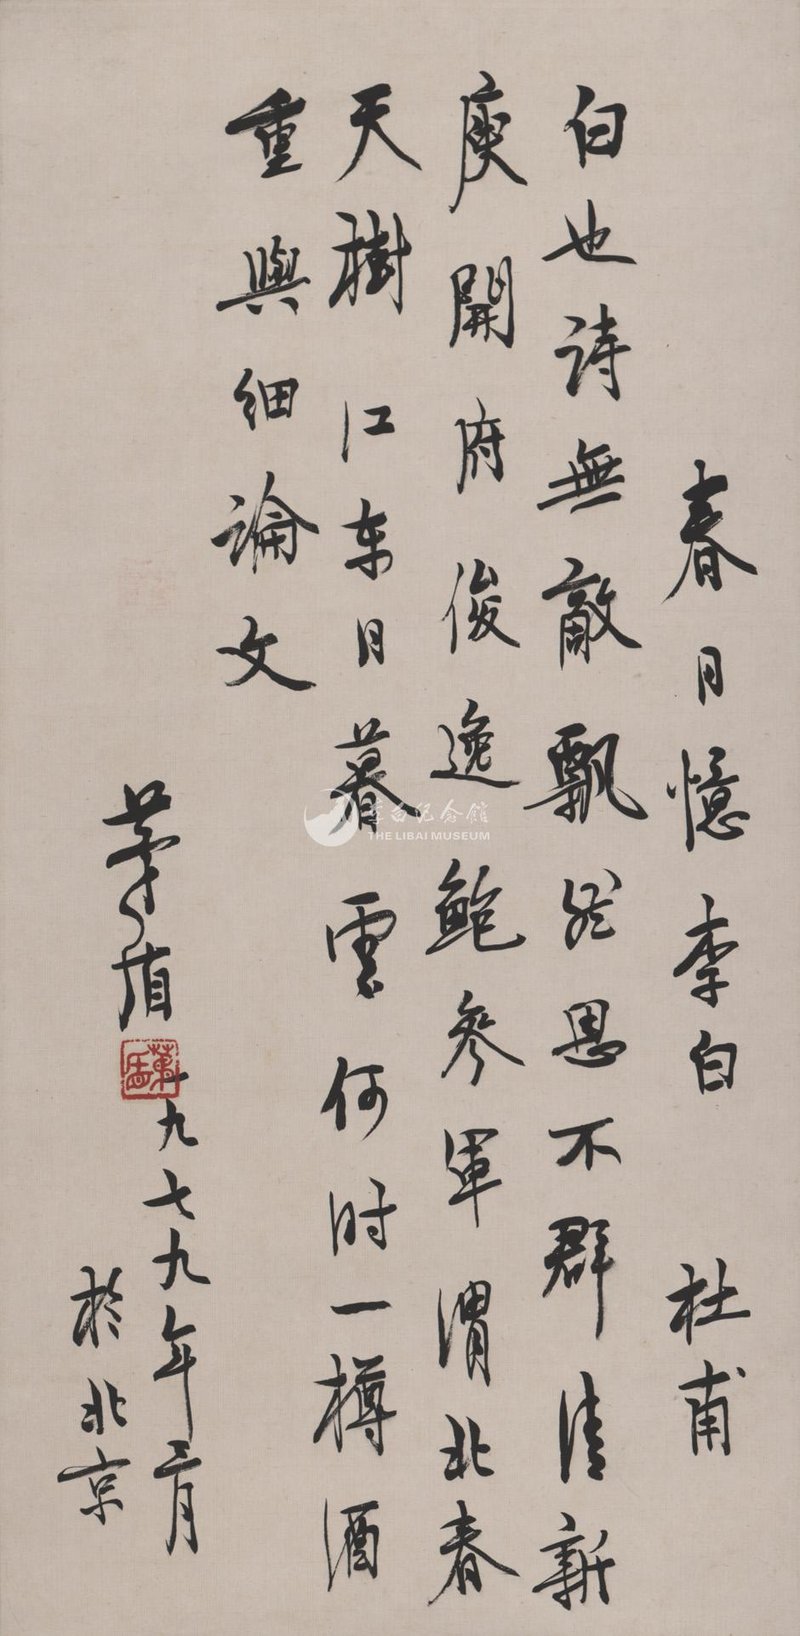 春日憶李白 杜甫
白也诗無敵飘然思不群清新
庾開府俊逸鲍参軍渭北春
天樹江东日暮雲何时一樽酒
重與细論文
茅盾
一九七九年三月
於北京
李白纪念館
THE LIBAI MUSEUM